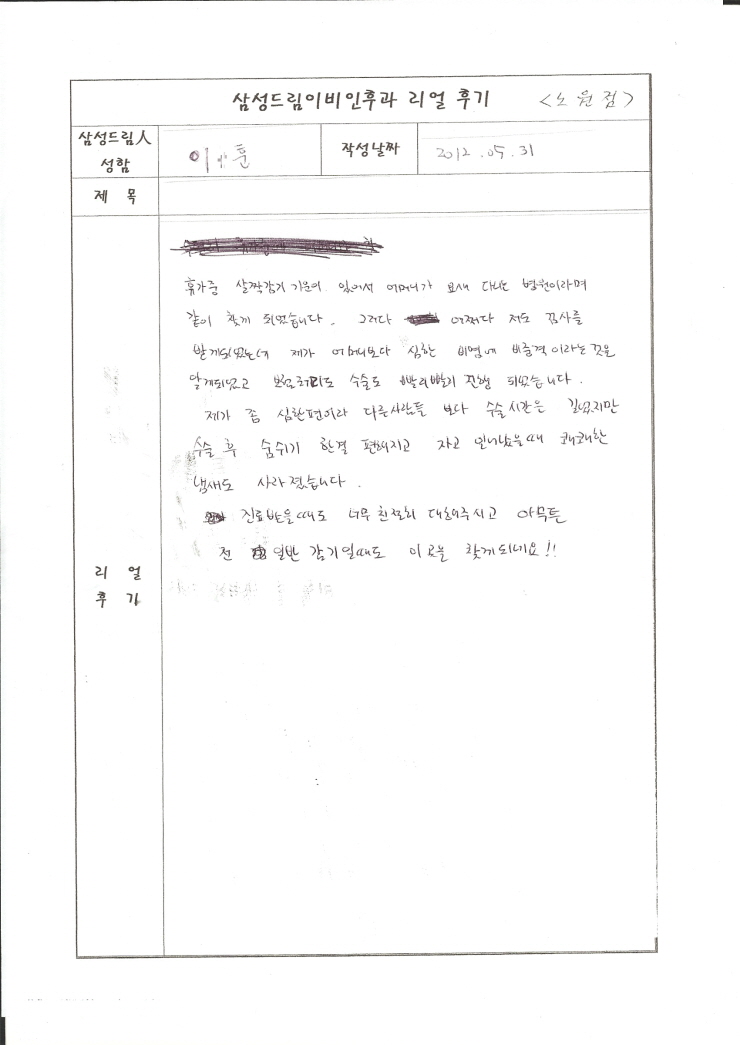 삼성드림이비인후과 리얼 후기 <노원점>
삼성드림人 성함
이 훈
작성날짜
2012.05.31
제 목
리 얼 후 기
휴가중 살짝감기 기운이 있어서 어머니가 요새 다니는 병원이라며
같이 찾게 되었습니다. 그러다 어쩌다 저도 검사를
받게되었는데 제가 어머니보다 심한 비염에 비중격이라는 것을
알게되었고 보험처리도 수술도 빨리빨리 진행 되었습니다.
제가 좀 심한편이라 다른사람들 보다 수술시간은 길었지만
수술 후 숨쉬기 한결 편해지고 자고 일어났을때 쾌쾌한
냄새도 사라졌습니다.
진료받을때도 너무 친절히 대해주시고 아무튼
전 일반 감기일때도 이곳을 찾게되네요!!